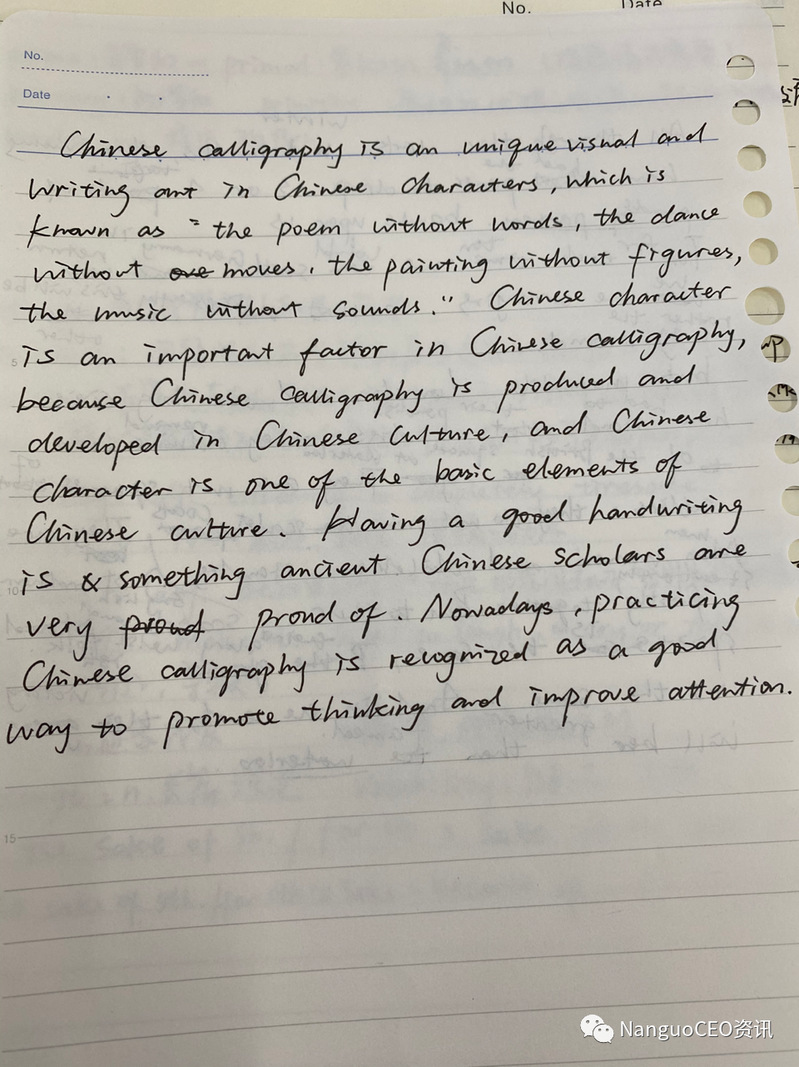 No. Date
No.
Date
Chinese calligraphy is an unique visual and
writing art in Chinese characters, which is
known as "the poem without words, the dance
without moves, the painting without figures,
the music without sounds." Chinese character
5 is an important factor in Chinese calligraphy,
because Chinese calligraphy is produced and
developed in Chinese culture, and Chinese
character is one of the basic elements of
Chinese culture. Having a good handwriting
10 is & something ancient Chinese scholars are
very proud of. Nowadays, practicing
Chinese calligraphy is recognized as a good
way to promote thinking and improve attention.
15
NanguoCEO资讯